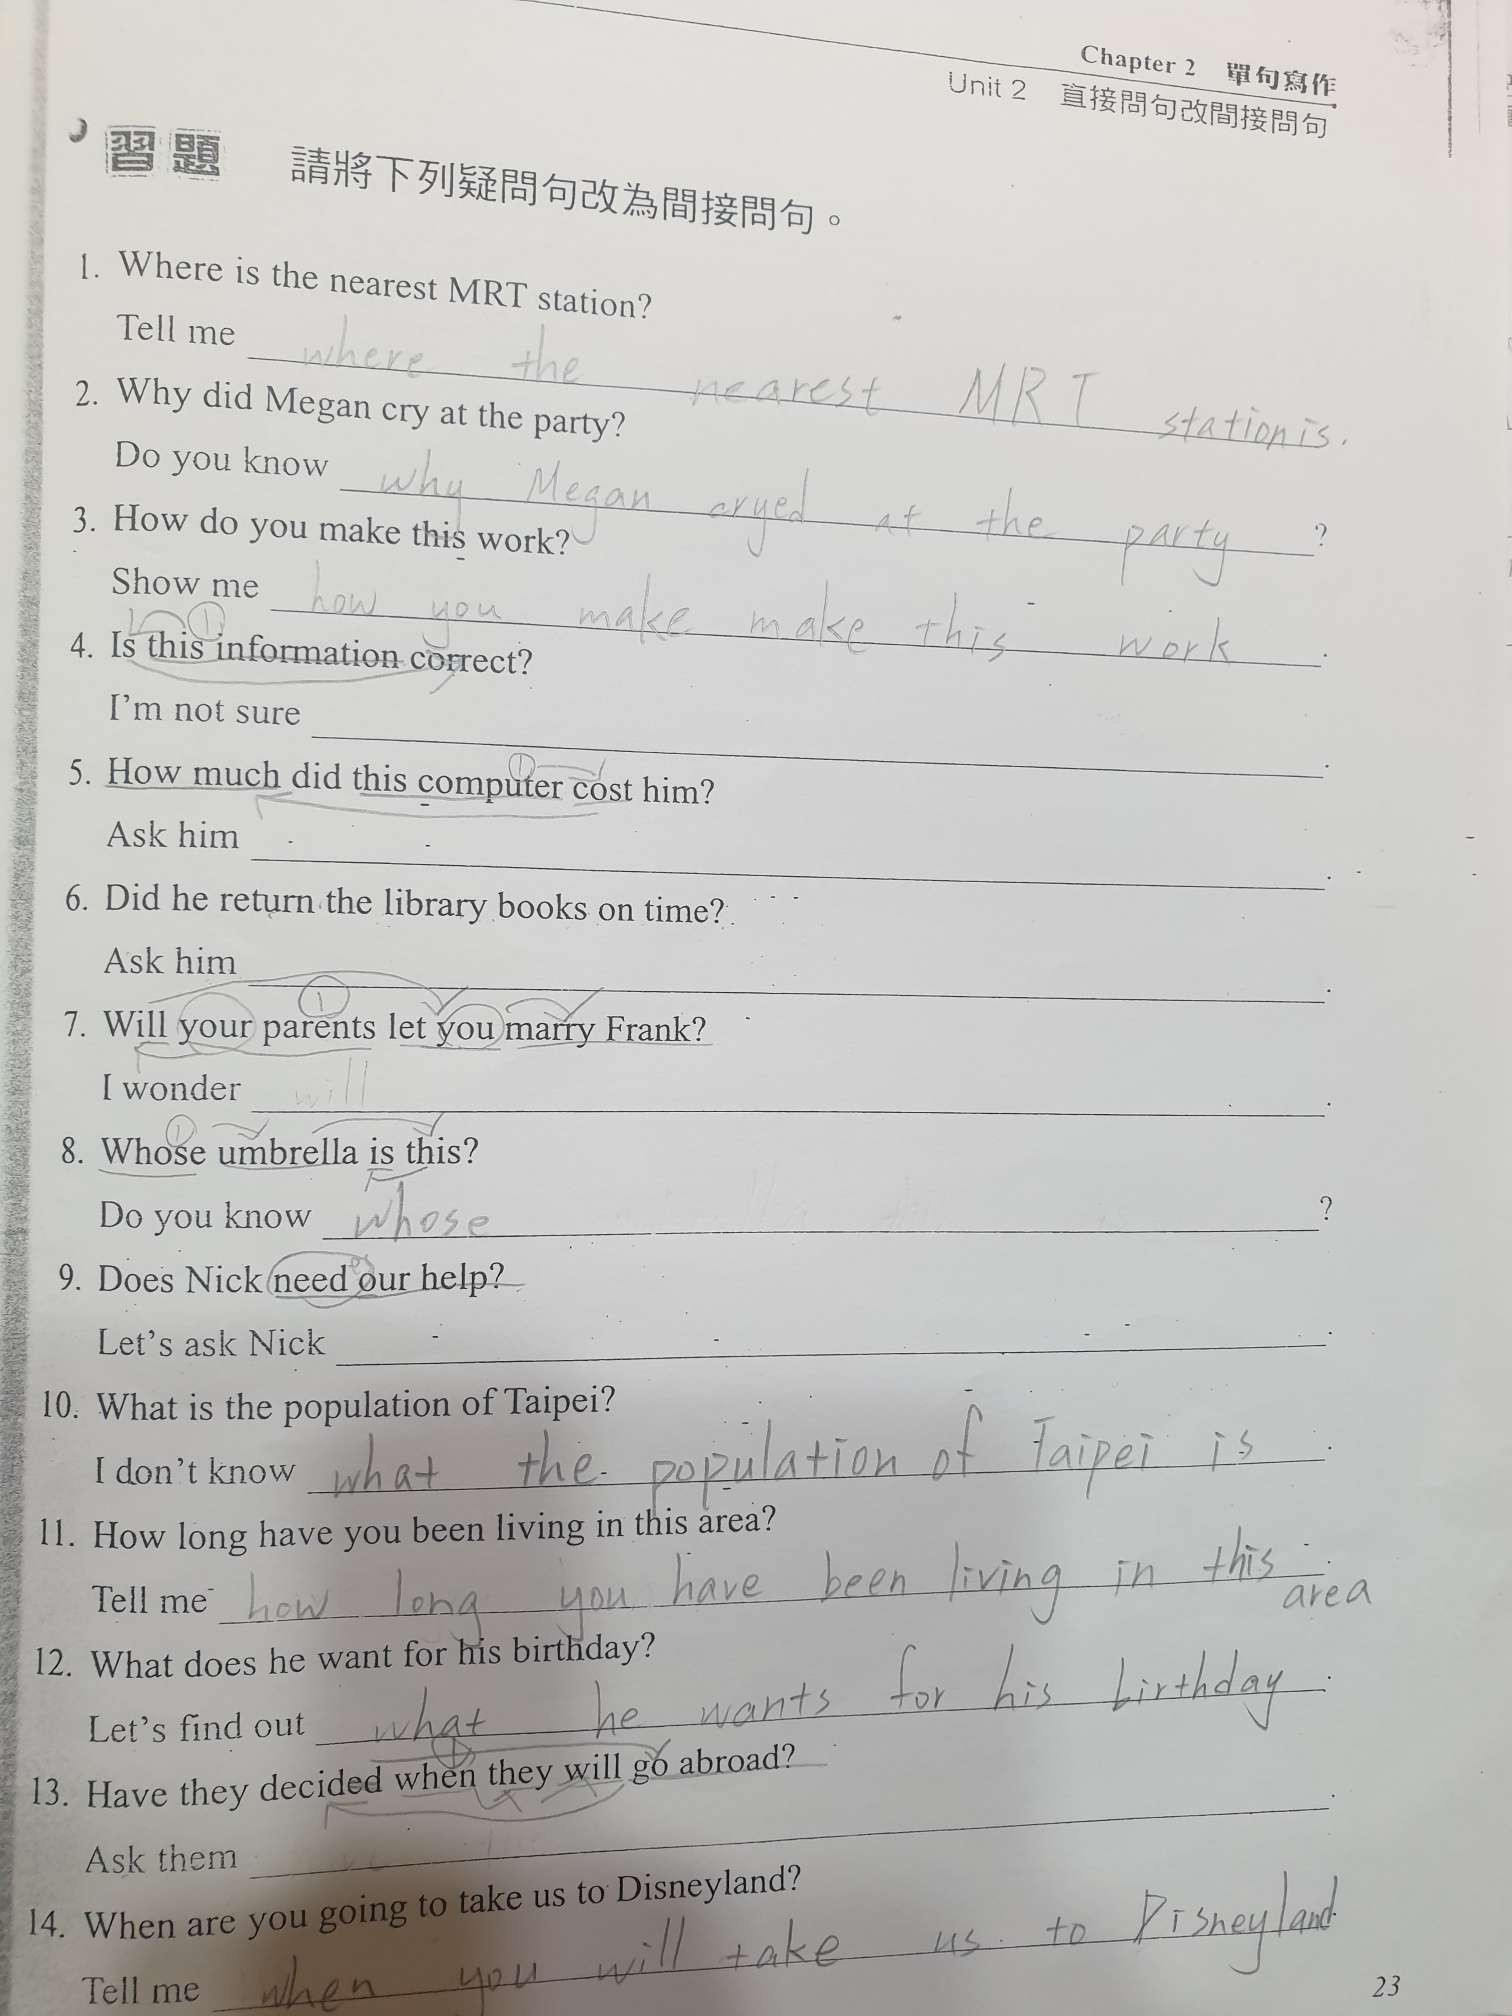 Chapter 2 單句寫作
Unit 2 直接問句改間接問句
習題 請將下列疑問句改為間接問句。
1. Where is the nearest MRT station?
Tell me where the nearest MRT station is.
2. Why did Megan cry at the party?
Do you know why Megan cryed at the party ?
3. How do you make this work?
Show me how you make make this work .
4. Is this information correct?
I'm not sure .
5. How much did this computer cost him?
Ask him .
6. Did he return the library books on time?
Ask him .
7. Will your parents let you marry Frank?
I wonder will .
8. Whose umbrella is this?
Do you know whose ?
9. Does Nick need our help?
Let's ask Nick .
10. What is the population of Taipei?
I don't know what the population of Taipei is .
11. How long have you been living in this area?
Tell me how long you have been living in this .
area
12. What does he want for his birthday?
Let's find out what he wants for his birthday .
13. Have they decided when they will go abroad?
Ask them .
14. When are you going to take us to Disneyland?
Tell me when you will take us to Disneyland.
23